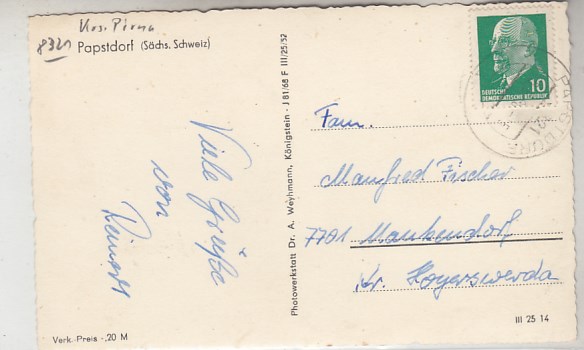 Krs. Pirna
8321 Papstdorf (Sächs. Schweiz)
Viele Grüße
von
Photowerkstatt Dr. A. Weyhmann, Königstein - J 81/68 F III/25/52
10
DEUTSCHE
DEMOKRATISCHE REPUBLIK
PAPSTDORF
Fam.
Manfred Fischer
7701 Maukendorf
Kr. Hoyerswerda
III 25 14
Verk.-Preis -,20 M